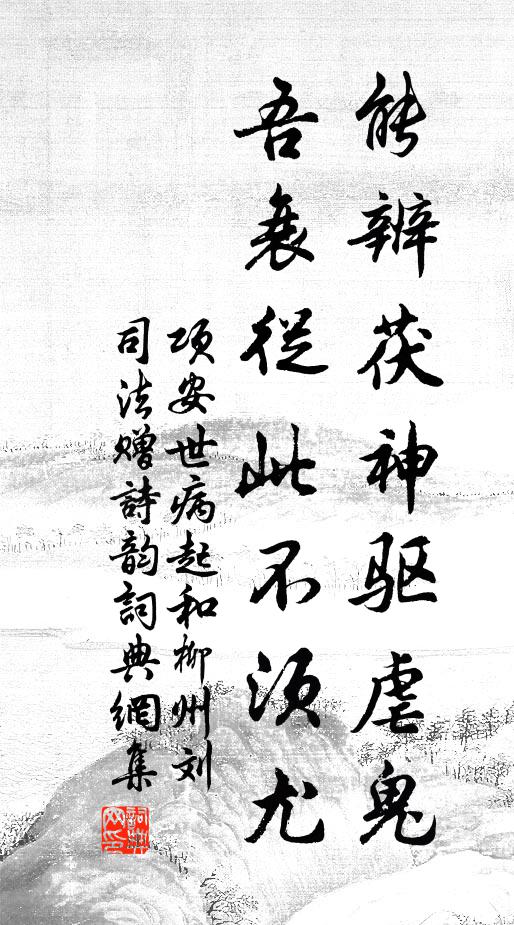 能辨茯神驱虐鬼
吾衰從此不須尤
项安世病起和柳州刘
司法赠詩韵詞典網集